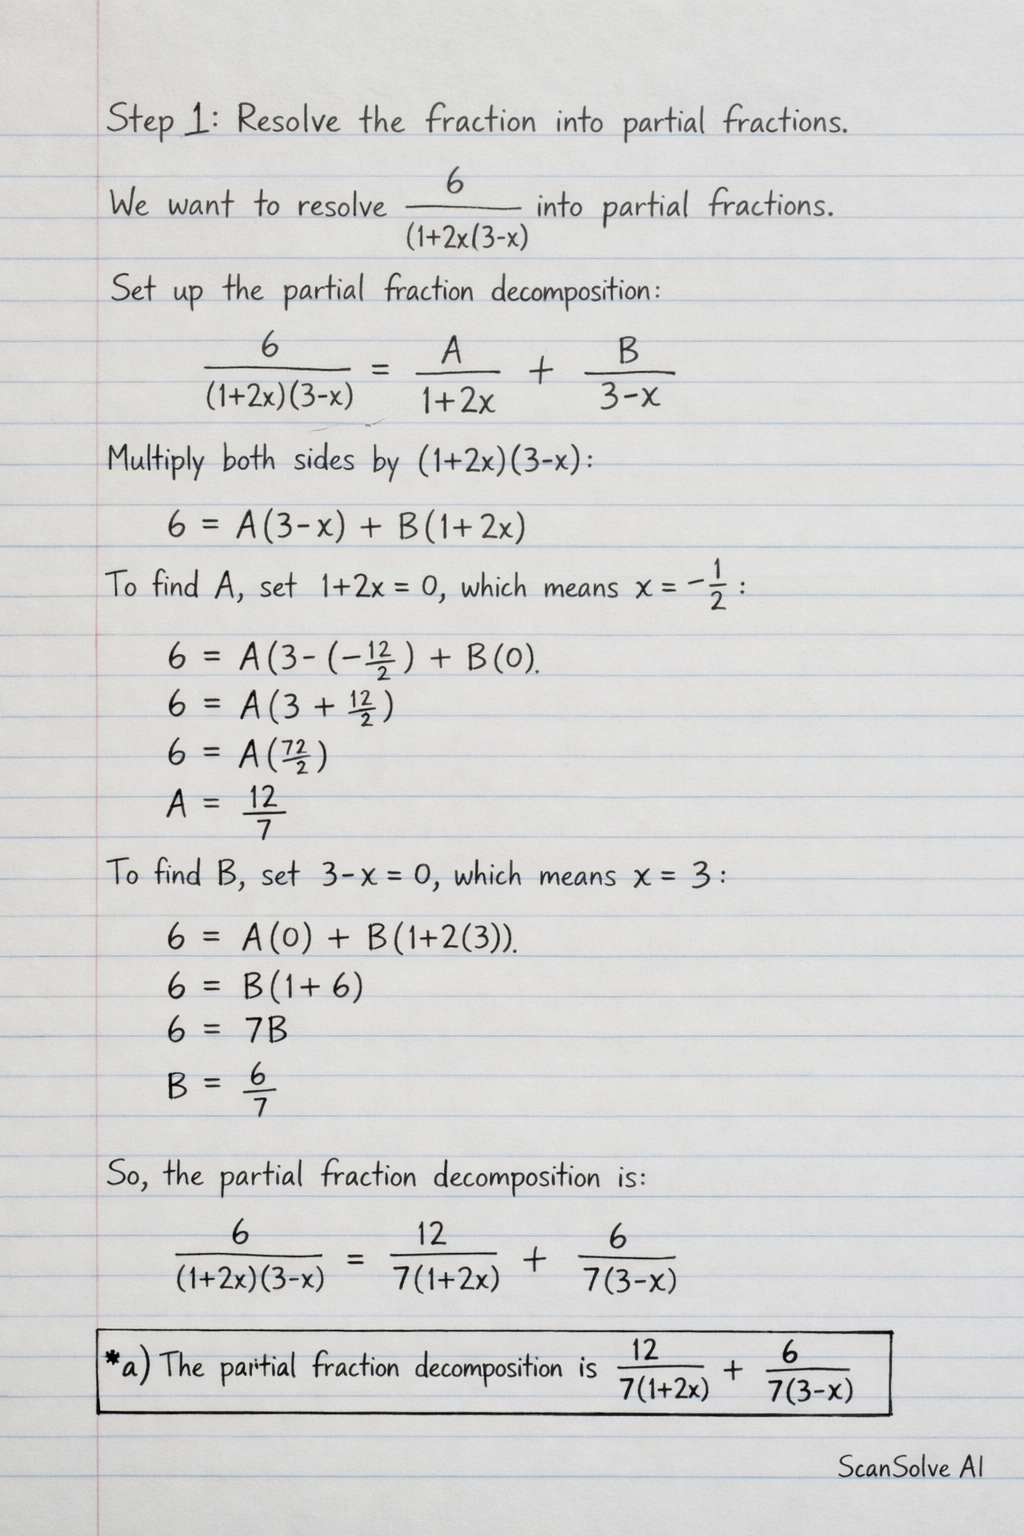 Step 1: Resolve the fraction into partial fractions.
We want to resolve 6/(1+2x(3-x) into partial fractions.
Set up the partial fraction decomposition:
6/(1+2x)(3-x) = A/1+2x + B/3-x
Multiply both sides by (1+2x)(3-x):
6 = A(3-x) + B(1+2x)
To find A, set 1+2x = 0, which means x = -1/2:
6 = A(3-(-12/2) + B(0).
6 = A(3 + 12/2)
6 = A(72/2)
A = 12/7
To find B, set 3-x = 0, which means x = 3:
6 = A(0) + B(1+2(3)).
6 = B(1+6)
6 = 7B
B = 6/7
So, the partial fraction decomposition is:
6/(1+2x)(3-x) = 12/7(1+2x) + 6/7(3-x)
*a) The partial fraction decomposition is 12/7(1+2x) + 6/7(3-x)
ScanSolve AI